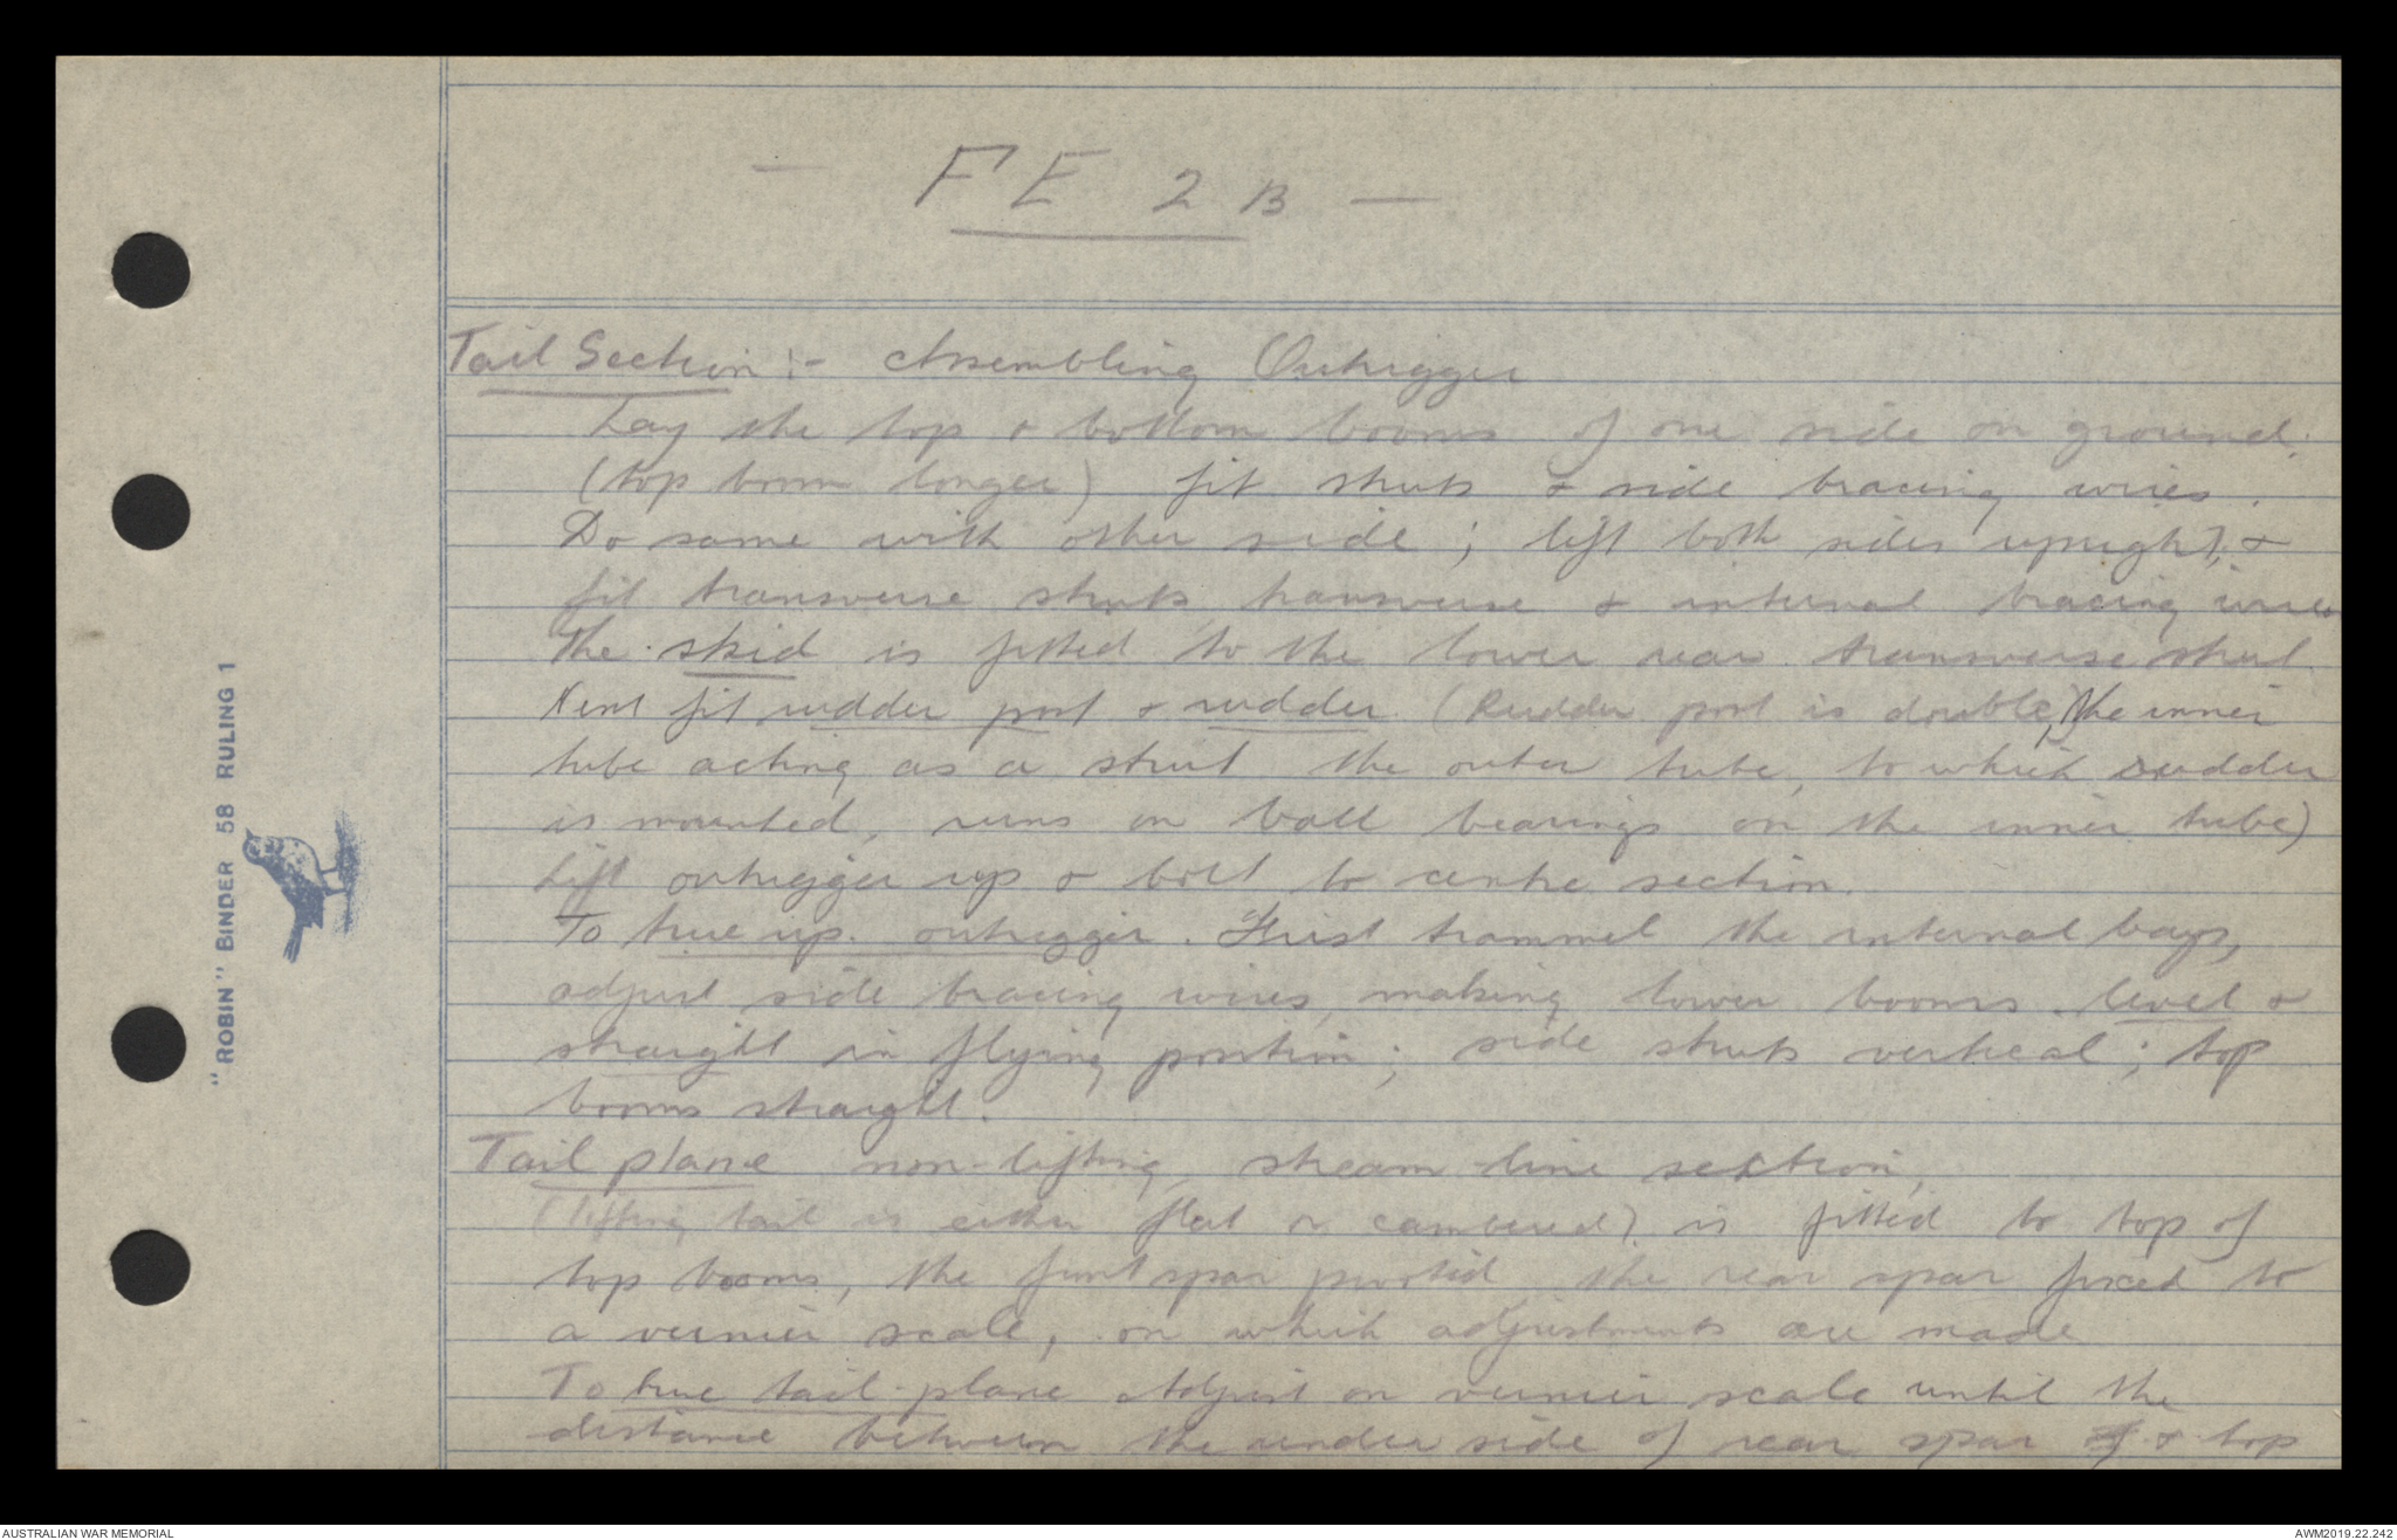 - FE 2 B -
Tail Section :- Assembling Outrigger
Lay the top & bottom booms of one side on ground.
(top boom longer) fit struts & side bracing wires.
Do same with other side ; lift both sides upright, &
fit transverse struts, transverse & internal bracing wires
The skid is fitted to the lower rear transverse strut.
Next fit rudder post & rudder. (Rudder post is double, the inner
tube acting as a strut the outer tube, to which rudder
is mounted, runs on ball bearings on the inner tube)
Lift outrigger up & bolt to centre section.
To true up outrigger. First trammel the internal bays,
adjust side bracing wires, making lower booms level &
straight in flying position ; side struts vertical ; top
booms straight.
Tail plane non-lifting, stream-line section,
(lifting tail is either flat or cambered) is fitted to top of
top booms, the front spar pivoted the rear spar fixed to
a vernier scale, on which adjustments are made
To true tail-plane Adjust on vernier scale until the
distance between the under side of rear spar of & top
"ROBIN" BINDER 58 RULING 1
AUSTRALIAN WAR MEMORIAL
AWM2019.22.242